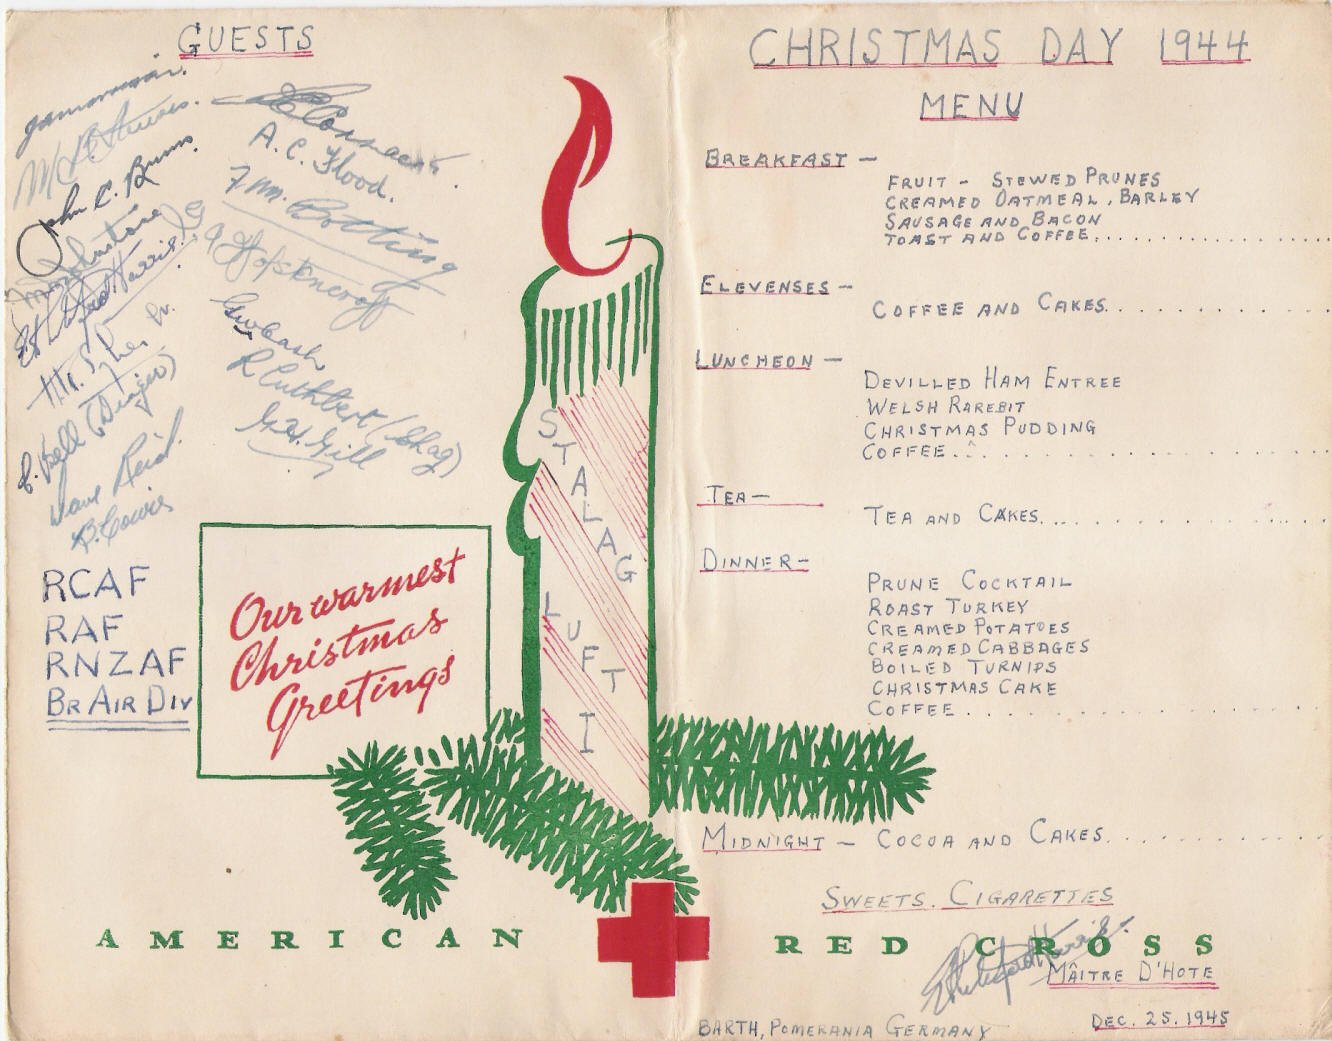 GUESTS
John C. Burns.
A. C. Flood.
Botting
R Cuthbert (Shag)
G. H. Gill
Dave Reid.
B. Cowie
RCAF
RAF
RNZAF
BR AIR DIV
Our warmest
Christmas
Greetings
STALAG
LUFT
I
CHRISTMAS DAY 1944
MENU
BREAKFAST —
FRUIT - STEWED PRUNES
CREAMED OATMEAL, BARLEY
SAUSAGE AND BACON
TOAST AND COFFEE
ELEVENSES —
COFFEE AND CAKES
LUNCHEON —
DEVILLED HAM ENTREE
WELSH RAREBIT
CHRISTMAS PUDDING
COFFEE
TEA —
TEA AND CAKES
DINNER —
PRUNE COCKTAIL
ROAST TURKEY
CREAMED POTATOES
CREAMED CABBAGES
BOILED TURNIPS
CHRISTMAS CAKE
COFFEE
MIDNIGHT — COCOA AND CAKES
SWEETS. CIGARETTES
AMERICAN RED CROSS
Harris.
MÂITRE D'HOTE
BARTH, POMERANIA GERMANY
DEC. 25. 1945